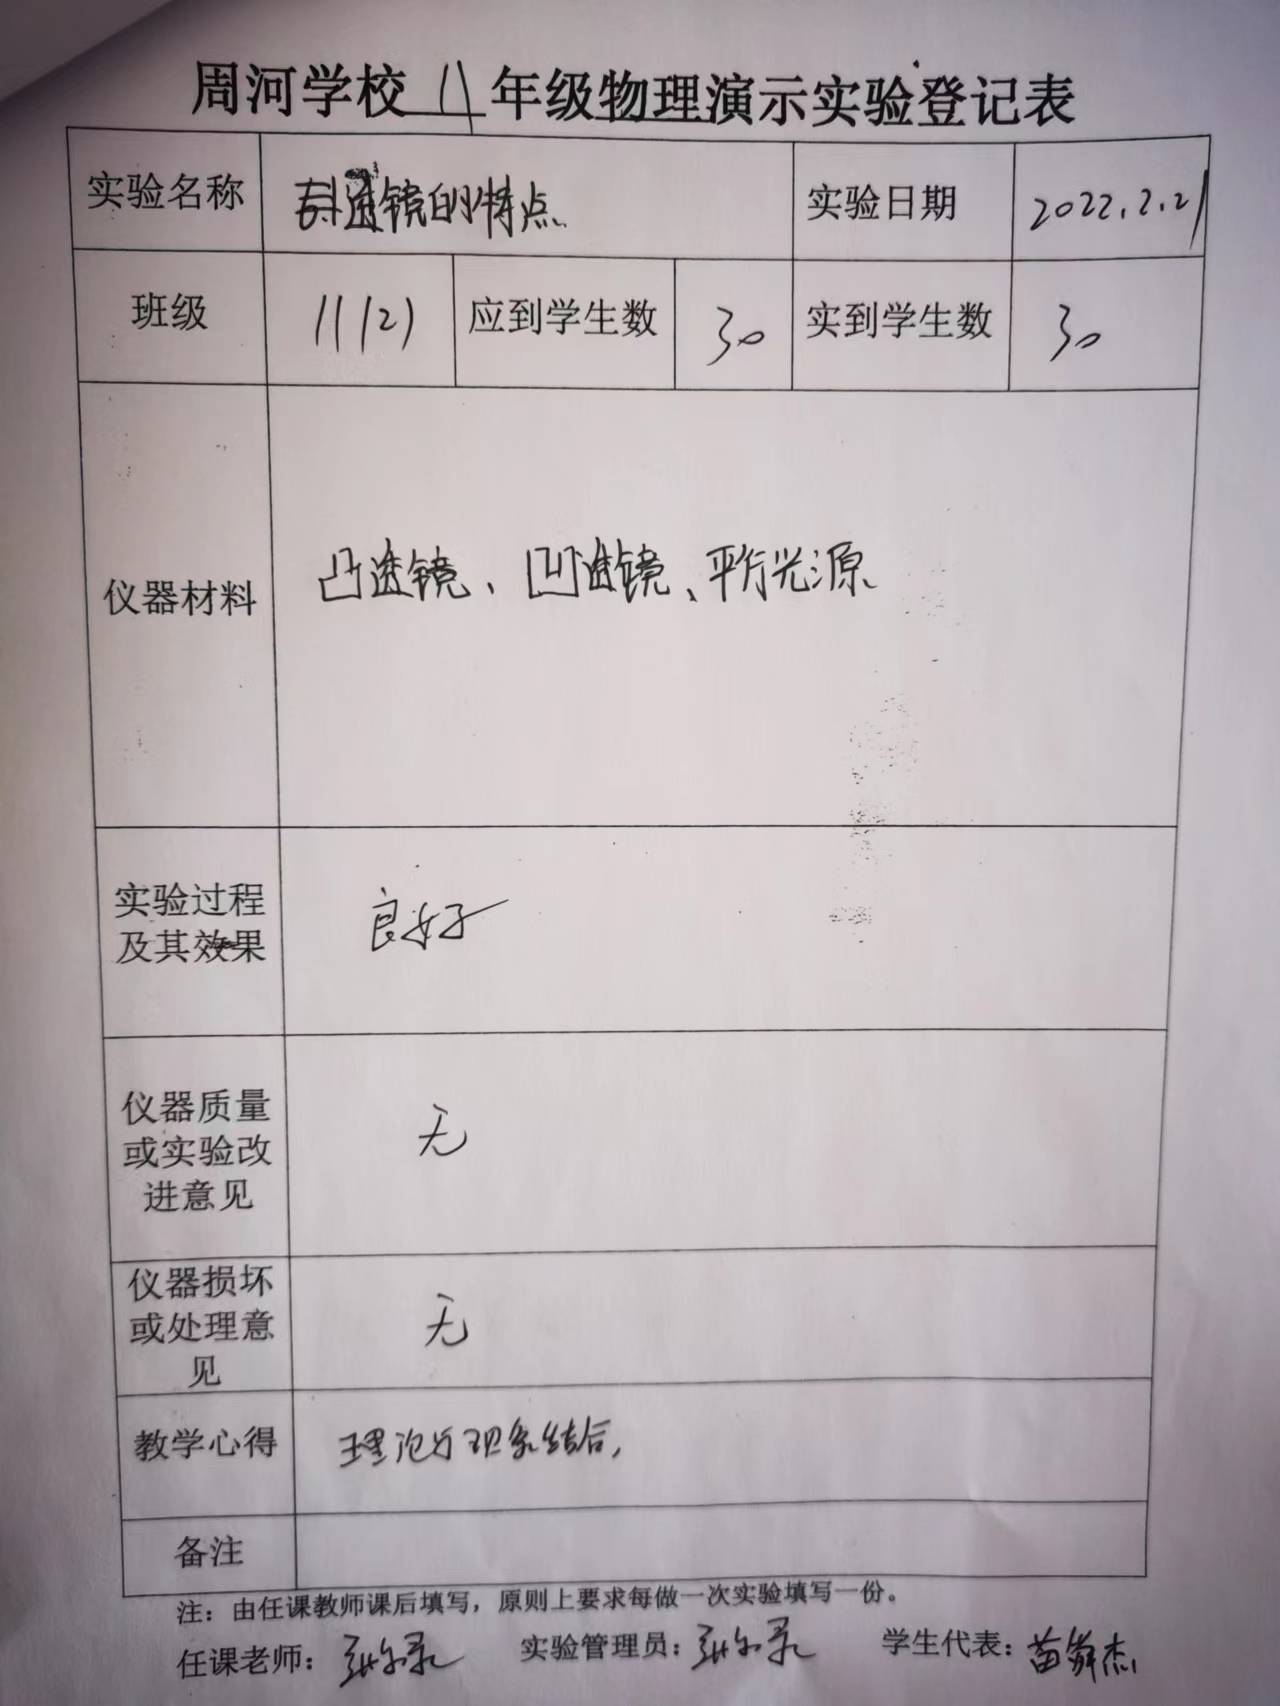 周河学校 11 年级物理演示实验登记表
实验名称 透镜的特点 实验日期 2022.2.21
班级 11(2) 应到学生数 30 实到学生数 30
仪器材料 凸透镜、凹透镜、平行光源
实验过程
及其效果 良好
仪器质量
或实验改
进意见 无
仪器损坏
或处理意
见 无
教学心得 理论与现象结合,
备注
注：由任课教师课后填写，原则上要求每做一次实验填写一份。
任课老师： 实验管理员： 学生代表：苗 杰